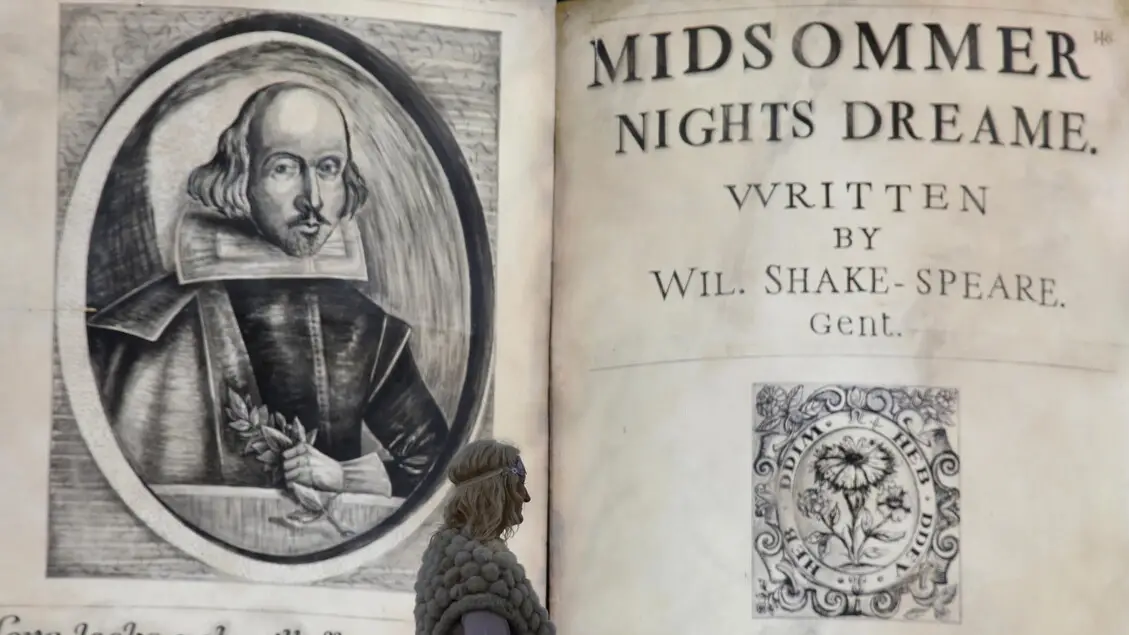 MIDSOMMER
NIGHTS DREAME.
WRITTEN
BY
WIL. SHAKE-SPEARE.
Gent.
HEB DDIM · HEB DDIEV ·